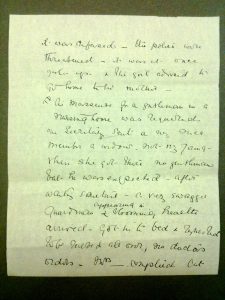 it was refused — the police were
threatened — it was at once
given up & the girl advised to
go home to her mother —
A masseuse for a gentleman in a
nursing home was required
the Secretary sent a very
member a widow, not very young —
When she got there no gentleman
but he was expected — after
waiting some time — a very swagger
appearing
Guardsman &
arrived — got in to bed &
to be rubbed all over, the doctors
orders — Mrs — complied but